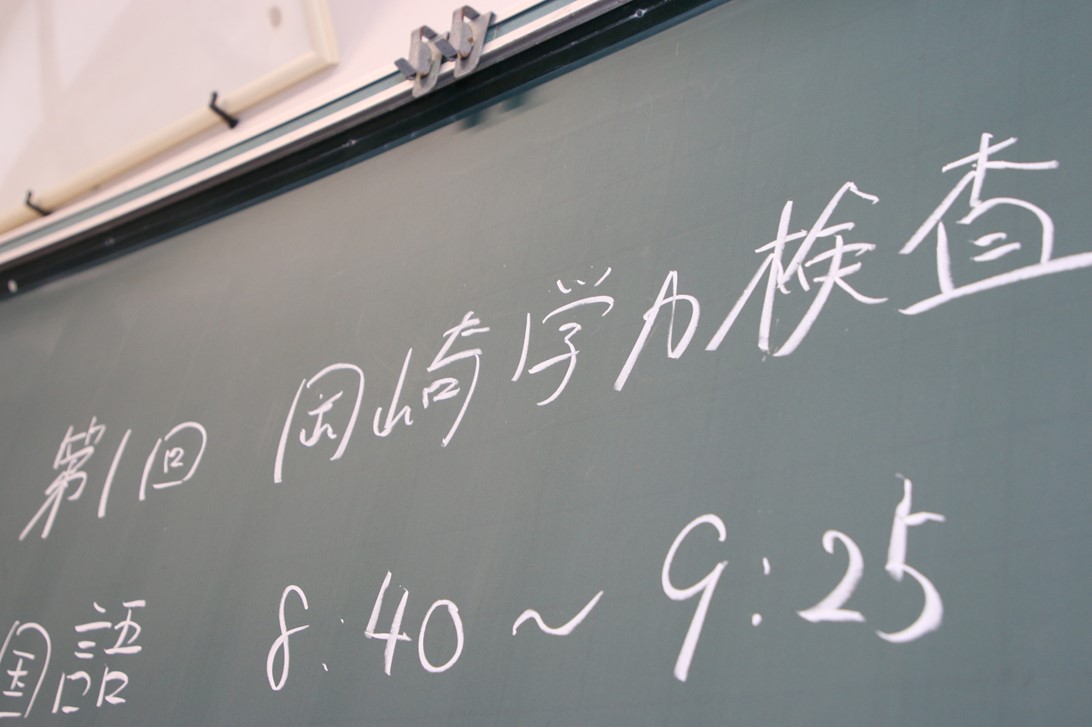 第1回 岡崎学力検査
国語 8:40~9:25